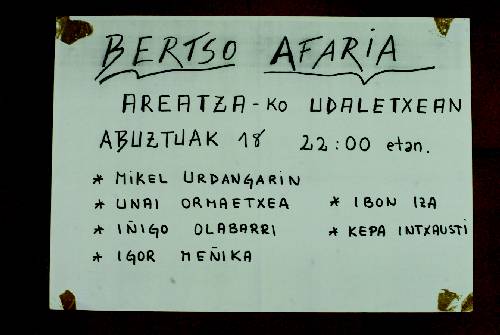 BERTSO AFARIA
AREATZA-KO UDALETXEAN
ABUZTUAK 18 22:00 etan.
* MIKEL URDANGARIN
* UNAI ORMAETXEA
* IÑIGO OLABARRI
* IGOR MEÑIKA
* IBON IZA
* KEPA INTXAUSTI